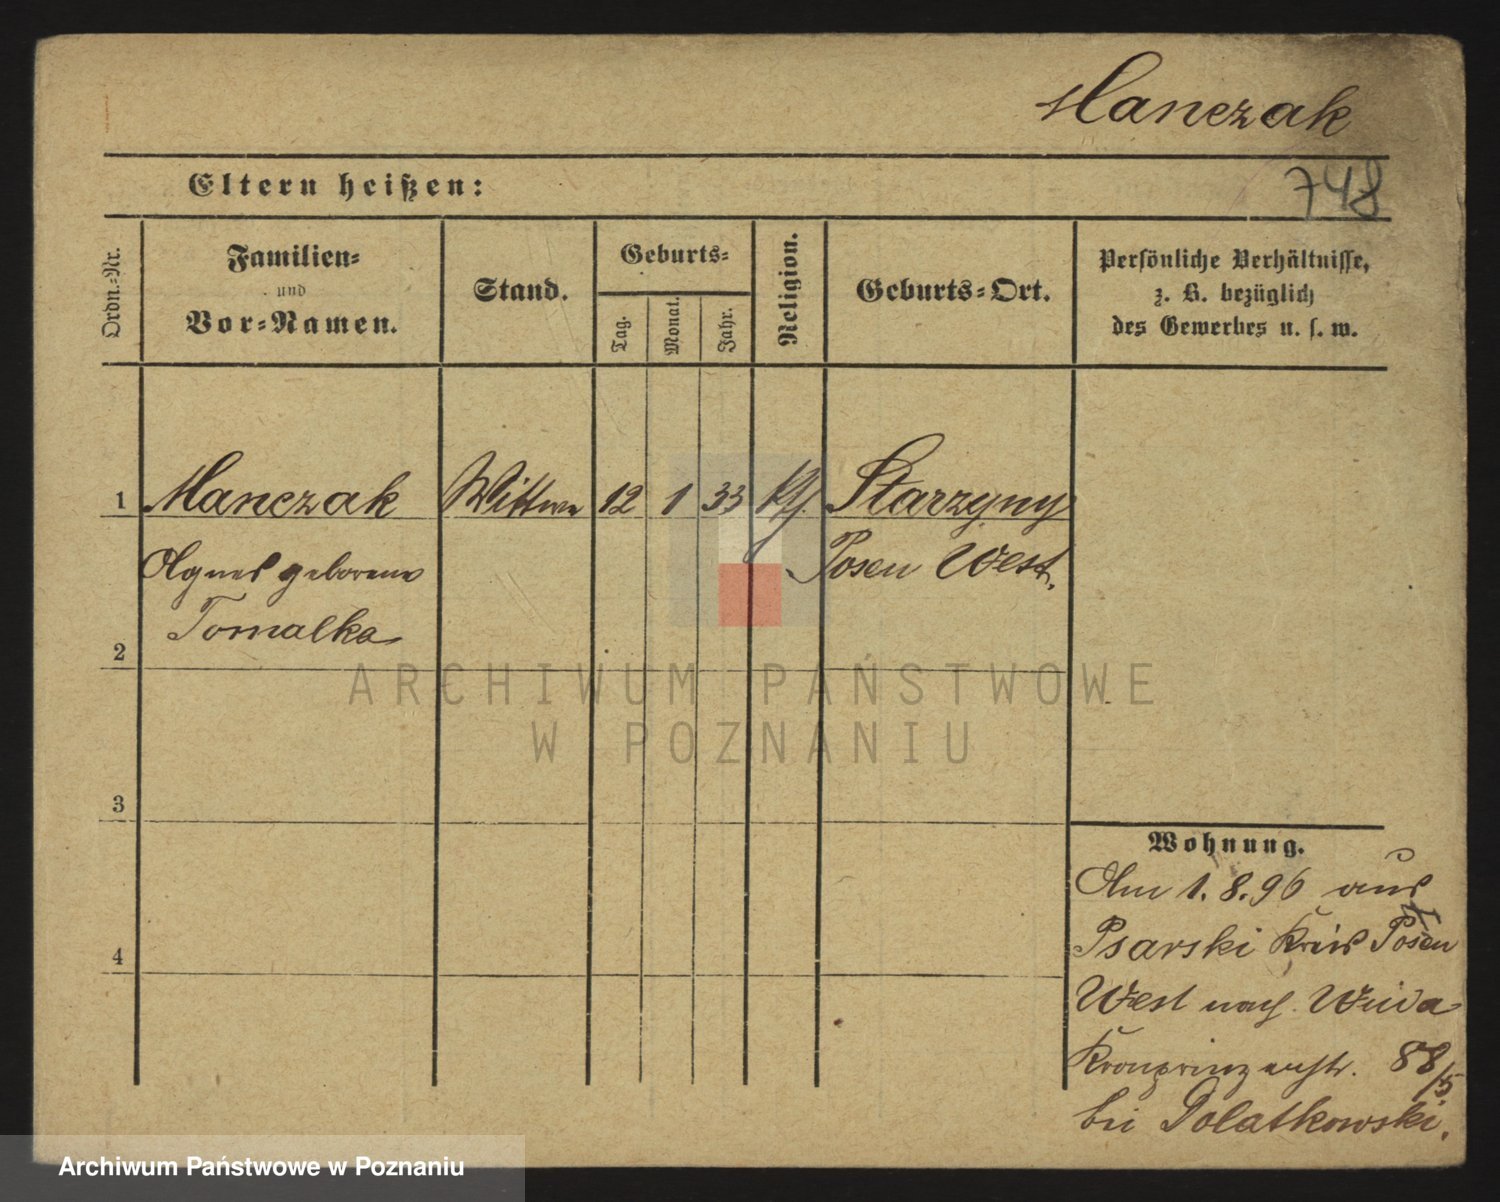 Manczak
748
Eltern heißen:
Ordn.-Nr.
Familien-
und
Vor-Namen.
Stand.
Geburts-
Tag.
Monat.
Jahr.
Religion.
Geburts-Ort.
Persönliche Verhältnisse,
z. B. bezüglich
des Gewerbes u. s. w.
1 Manczak Wittwe 12 1 33 kth. Starzyny
Posen West.
Agnes geborene
Tomalka
2
3
4
Wohnung.
Am 1. 8. 96 aus
Psarski Kreis Posen
West nach Wilda
Kronprinzenstr. 88/5
bei Dolatkowski.
ARCHIWUM PAŃSTWOWE
W POZNANIU
Archiwum Państwowe w Poznaniu